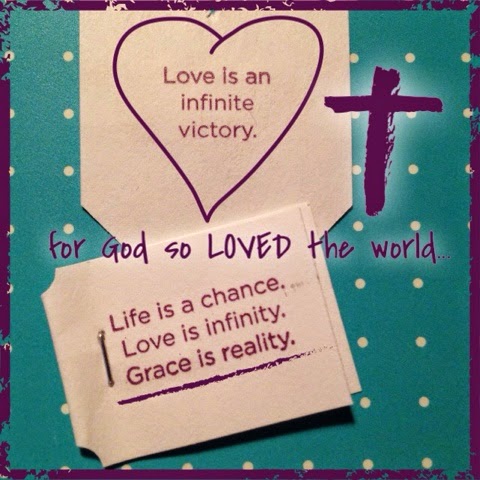 Love is an
infinite
victory.
for God so LOVED the world...
Life is a chance.
Love is infinity.
Grace is reality.